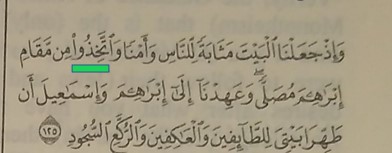 وَإِذْ جَعَلْنَا ٱلْبَيْتَ مَثَابَةً لِّلنَّاسِ وَأَمْنًا وَٱتَّخِذُوا۟ مِن مَّقَامِ
إِبْرَٰهِـۧمَ مُصَلًّى ۖ وَعَهِدْنَآ إِلَىٰٓ إِبْرَٰهِـۧمَ وَإِسْمَٰعِيلَ أَن
طَهِّرَا بَيْتِىَ لِلطَّآئِفِينَ وَٱلْعَٰكِفِينَ وَٱلرُّكَّعِ ٱلسُّجُودِ ١٢٥